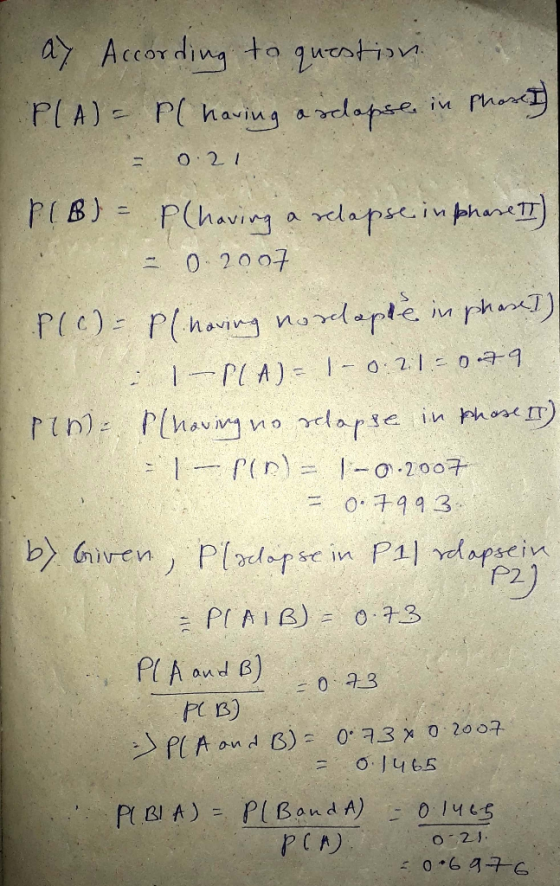 a) According to question.
P(A) = P( having a relapse in Phase I)
= 0.21
P(B) = P(having a relapse in phase II)
= 0.2007
P(C) = P(having no relapse in phase I)
= 1 - P(A) = 1 - 0.21 = 0.79
P(D) = P(having no relapse in phase II)
= 1 - P(D) = 1 - 0.2007
= 0.7993.
b) Given, P(relapse in P1| relapse in
P2)
= P(A|B) = 0.73
P(A and B)
= 0.73
P(B)
=> P(A and B) = 0.73 x 0.2007
= 0.1465
P(B|A) = P(B and A) = 0.1465
P(A) 0.21.
= 0.6976